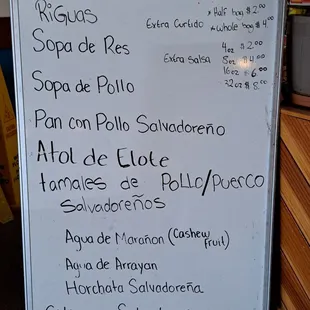 RiGuas
Extra Curtido
* Half bag $2.00
* Whole bag $4.00
Sopa de Res
Extra Salsa
4oz $2.00
8oz $4.00
16oz $6.00
32oz $8.00
Sopa de Pollo
Pan con Pollo Salvadoreño
Atol de Elote
tamales de Pollo/Puerco
Salvadoreños
Agua de Marañon (Cashew fruit)
Agua de Arrayan
Horchata Salvadoreña